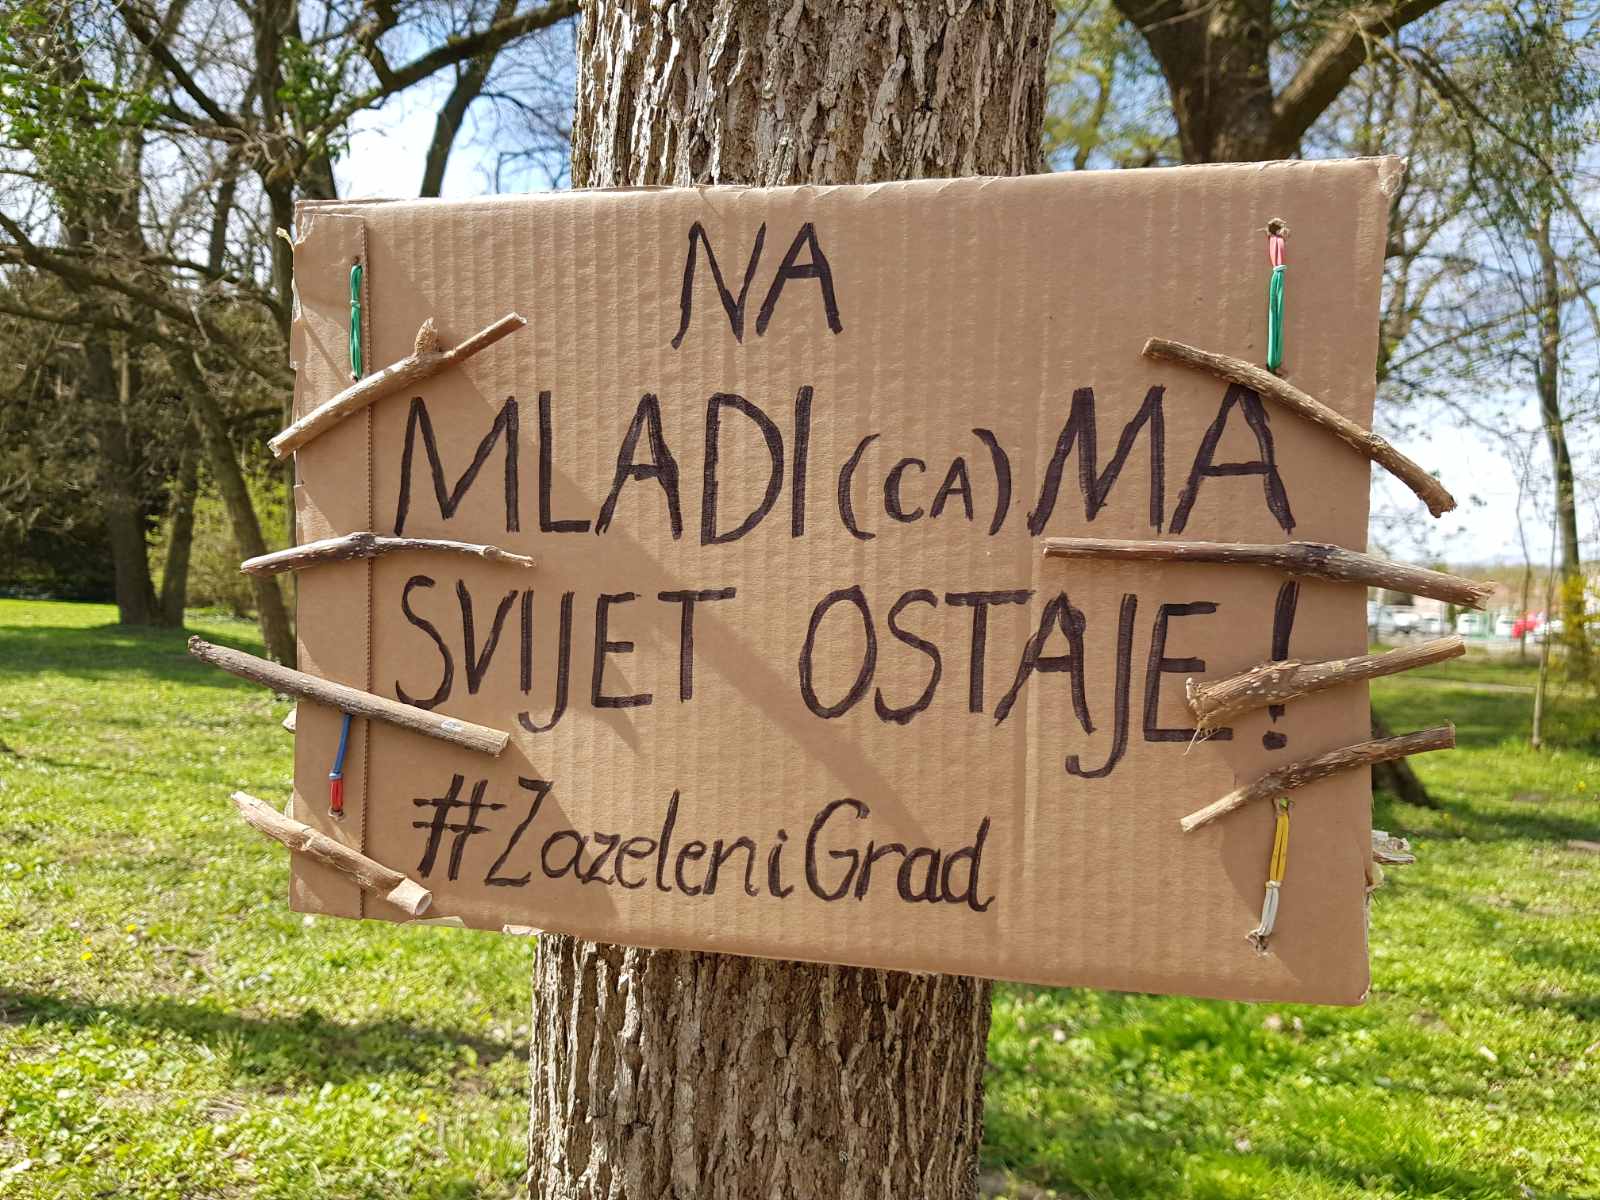 NA
MLADI(CA)MA
SVIJET OSTAJE!
#ZazeleniGrad